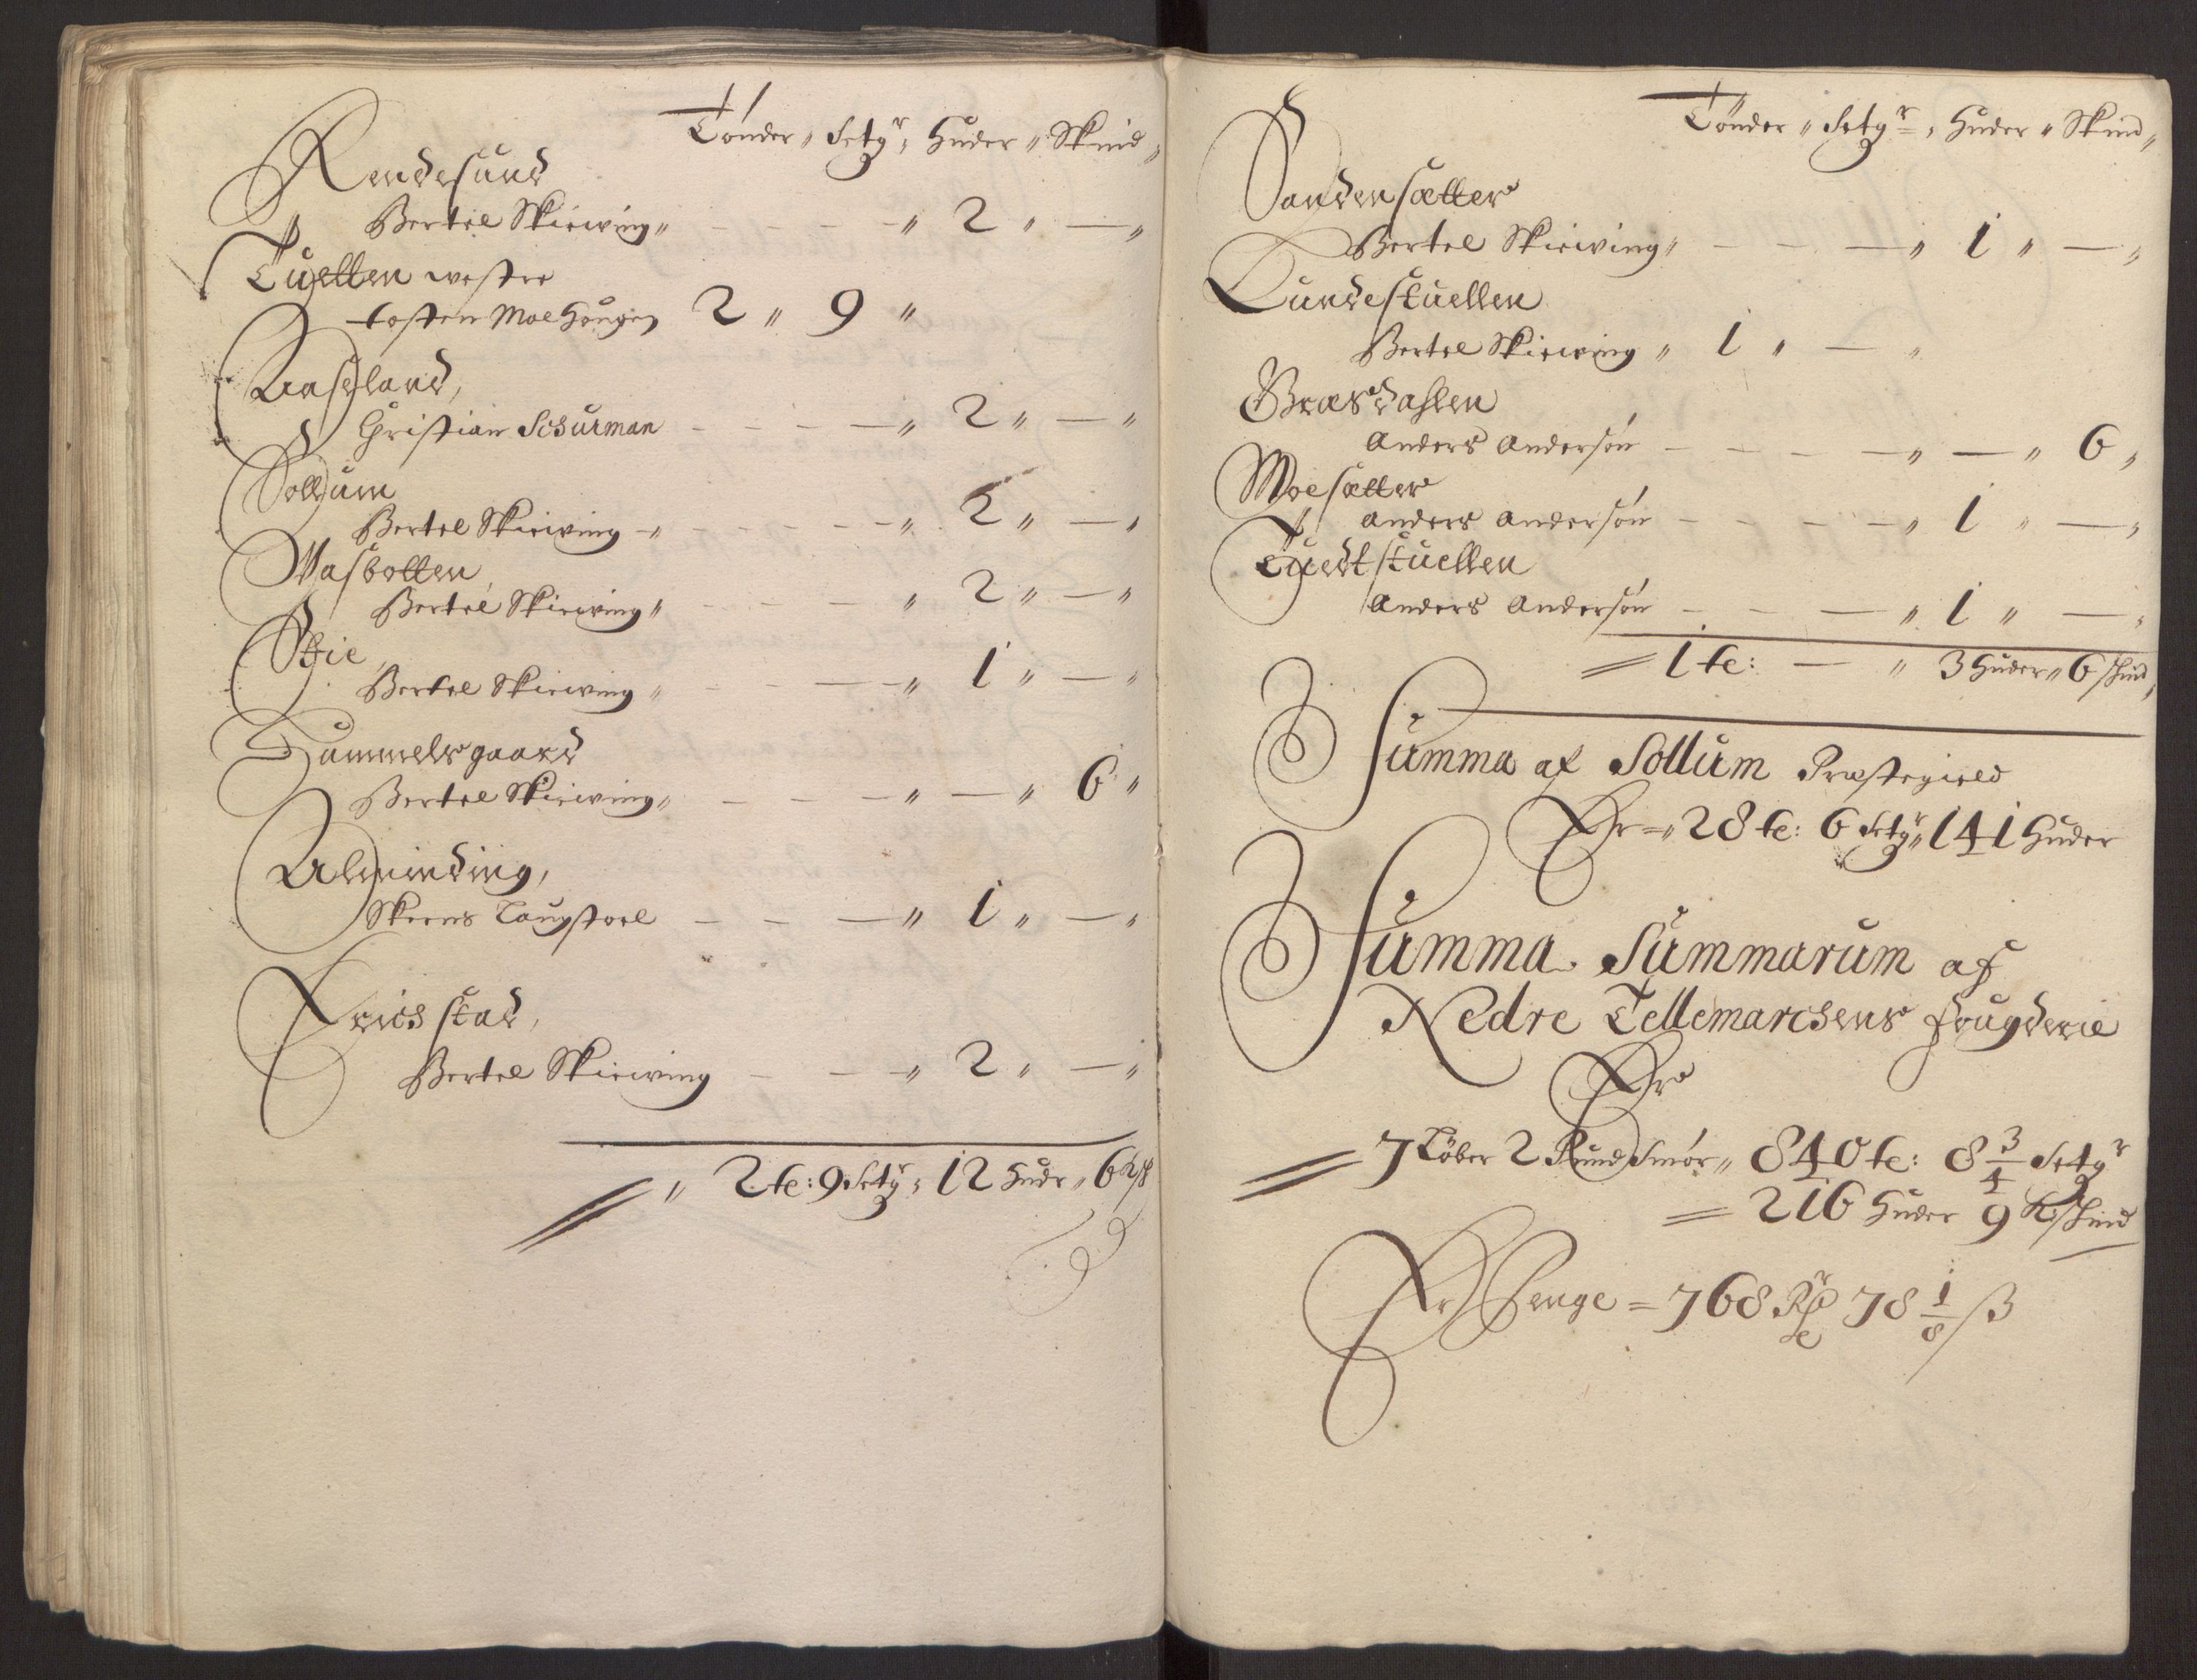 Tønder „ Setgr „ Huder „ Skind „
Rendesund
Bertel Skierving „ - - - — „ 2 „ — „
Tuetten westre
tosten Moe Hougen 2 „ 9 „
Aasland,
Christian Schurman - - - — „ 2 „ — „
Sollum
Bertel Skierving - „ - - - - „ 2 „ — „
Aasbotten,
Bertel Skierving „ - - - — „ 2 „ — „
Stie,
Bertel Skierving „ - - — „ 1 „ — „
Hummelsgaard
Bertel Skierving „ - - - — „ — „ 6 „
Alminding,
Skeens Laugstoel - - — „ 1 „ — „
Erichstad,
Bertel Skierving - — „ 2 „ — „
„ 2 te: 9 Setgr „ 12 Hudr „ 6 K/sk
Tønder „ Setgr „ Huder „ Skind „
Sandersætter
Bertel Skierving „ - - — „ 1 „ — „
Lundestuellen
Bertel Skierving „ 1 „ — „
Bræsdahlen
Anders Andersøn - - - — „ — „ 6 „
Moesætter
Anders Andersøn - - - — „ 1 „ — „
Tuedtstuellen
Anders Andersøn - - — „ 1 „ — „
= 1 te: — „ 3 Huder „ 6 skind „
Summa af Sollum Præstegield
Er = „ 28 te: 6 Setgr „ 141 Huder
Summa Summarum af
Nedre Tellemarchens fougderie
Er
= 7 Løber 2 Pund Smør „ 840 te: 8 3/4 Setgr
= 216 Huder 9 K: skind
Er Penge = 768 Rdr 78 1/8 ß